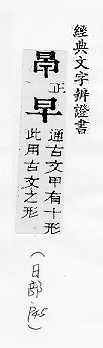 經典文字辨證書
正
早
通古文甲有十形
此用古文之形
日部